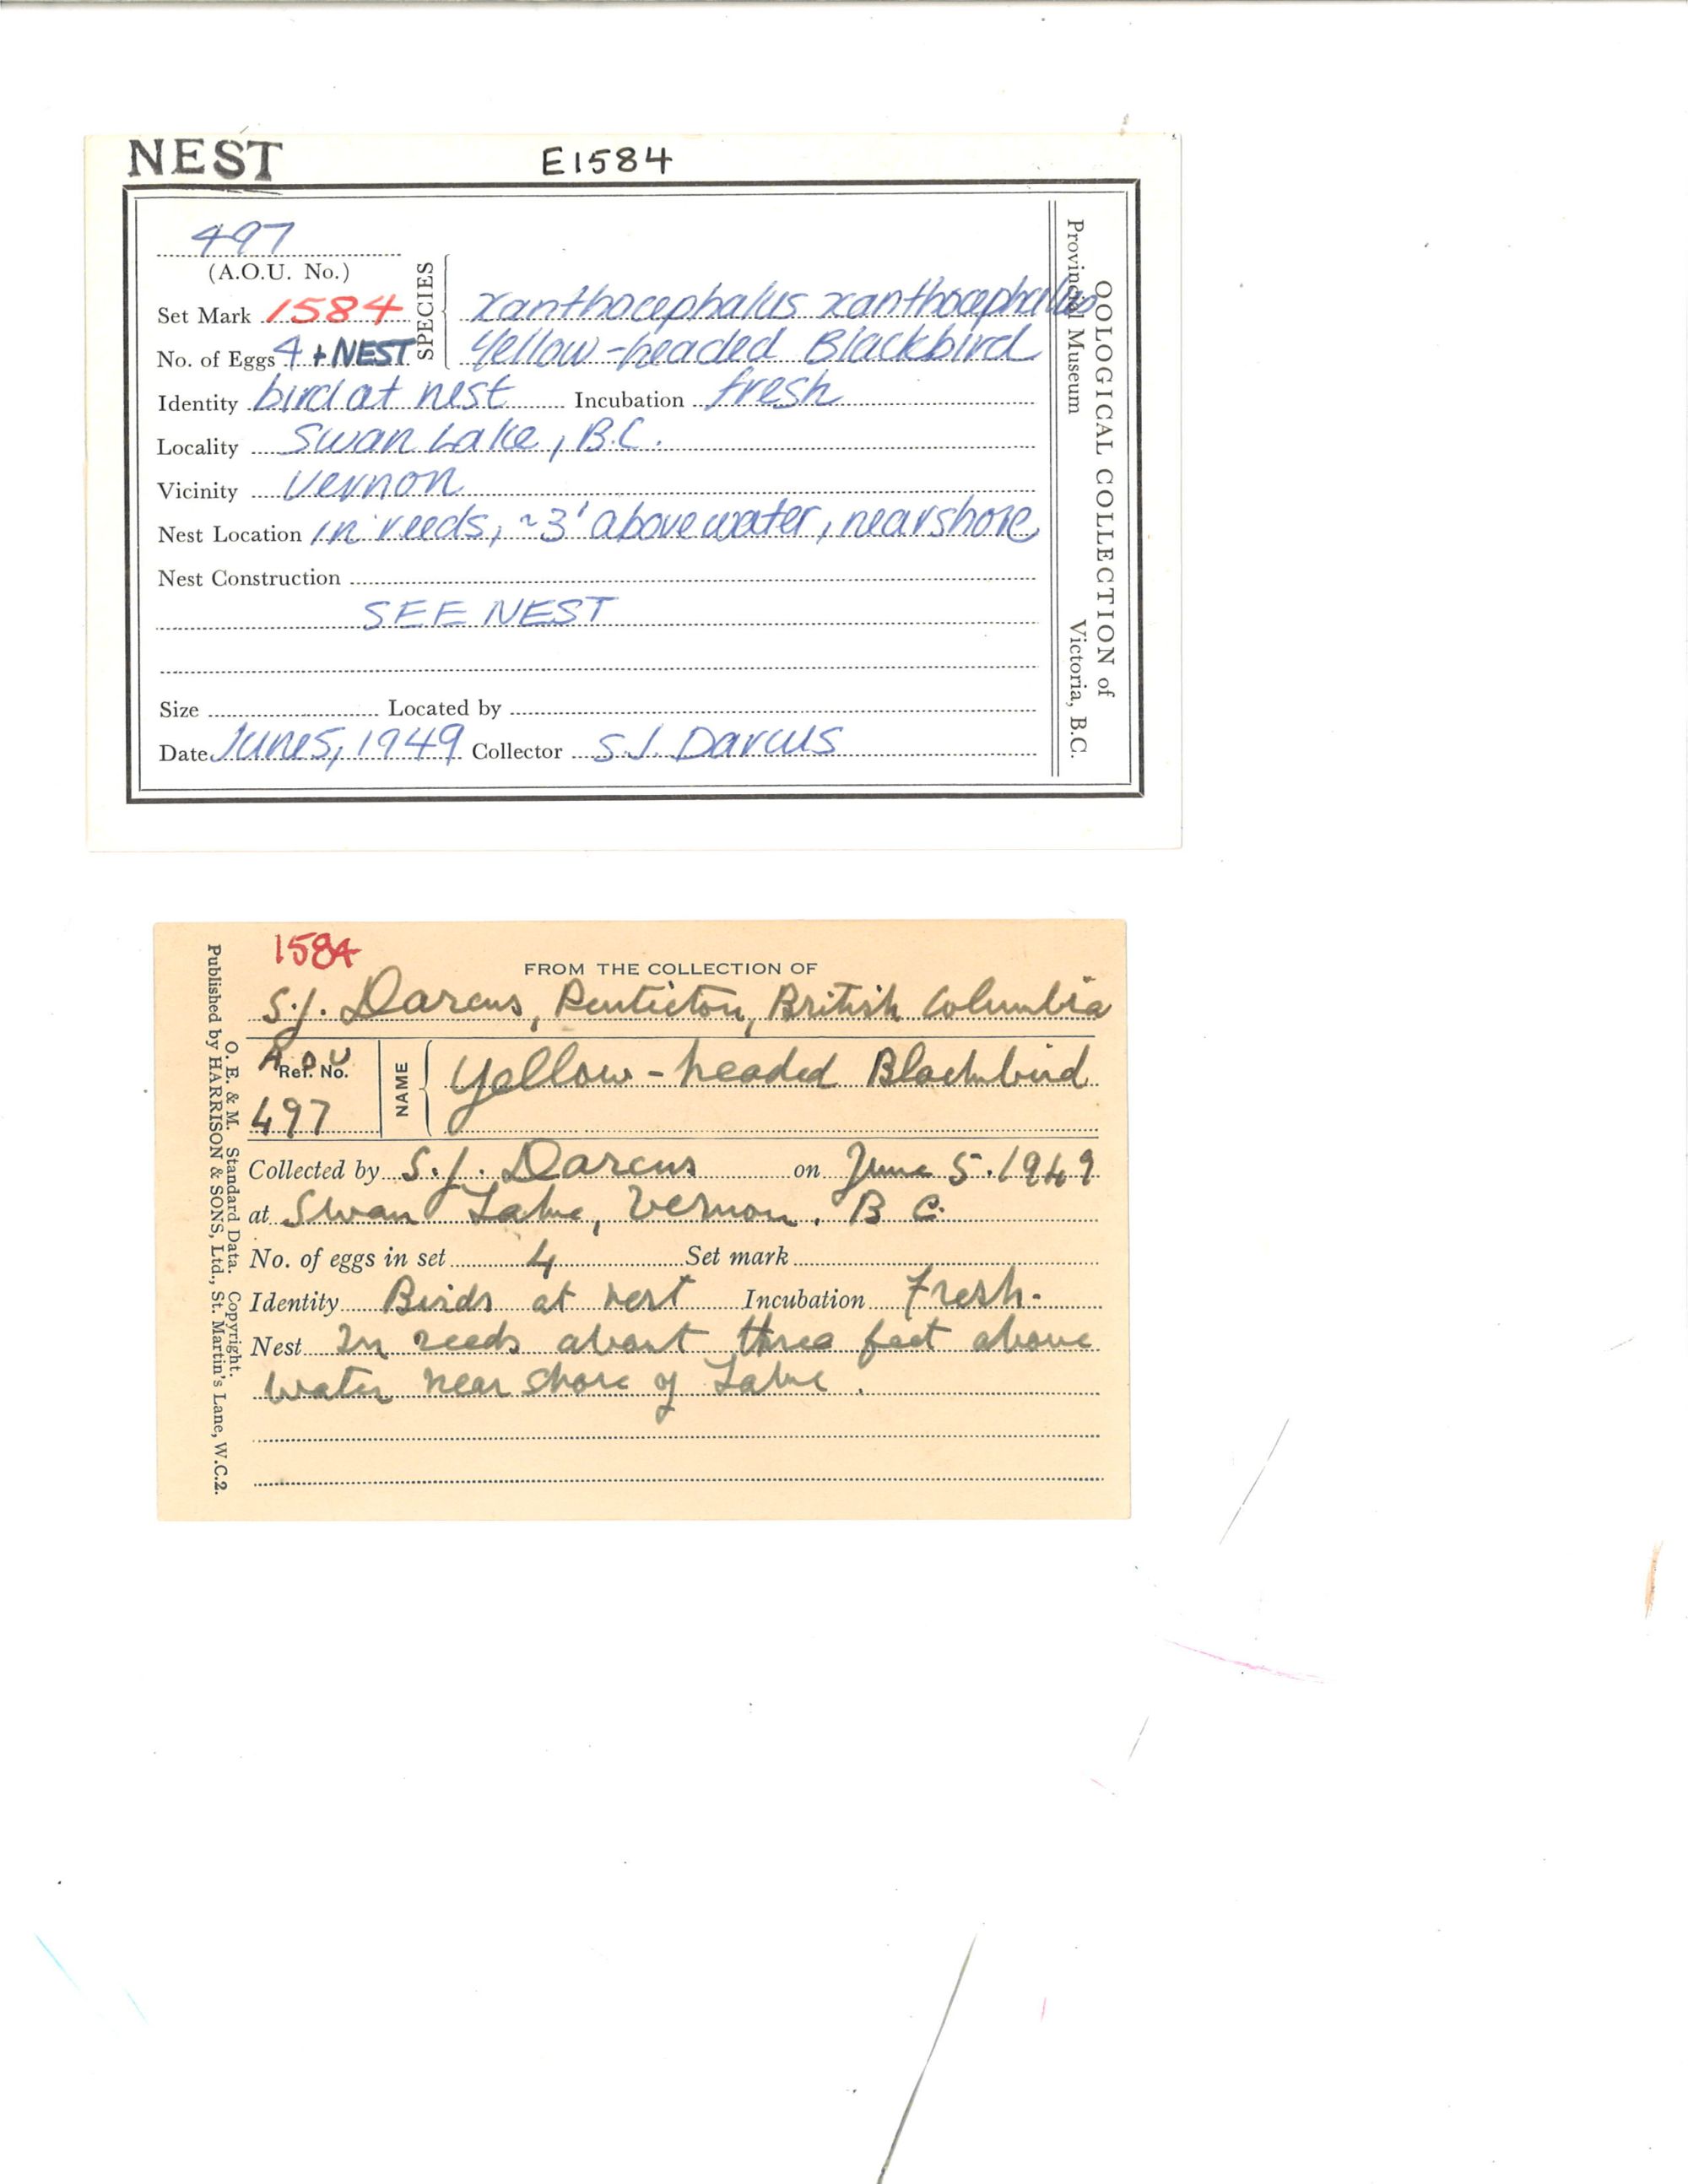 NEST E1584
497
(A.O.U. No.)
Set Mark 1584
No. of Eggs 4 + NEST
SPECIES
xanthocephalus xanthocephalus
Yellow-headed Blackbird
Identity bird at nest Incubation fresh
Locality Swan Lake, B.C.
Vicinity Vernon
Nest Location in reeds, ~3' above water, near shore
Nest Construction
SEE NEST
Size Located by
Date June 5, 1949 Collector S.J. Darcus
OOLOGICAL COLLECTION of
Provincial Museum Victoria, B.C.
1584
FROM THE COLLECTION OF
S.J. Darcus, Penticton, British Columbia
A.O.U
Ref. No.
497
NAME
Yellow-headed Blackbird
Collected by S.J. Darcus on June 5. 1949
at Swan Lake, Vernon. B C.
No. of eggs in set 4 Set mark
Identity Birds at nest Incubation Fresh.
Nest In reeds about three feet above
water near shore of Lake.
O. E. & M. Standard Data. Copyright.
Published by HARRISON & SONS, Ltd., St. Martin's Lane, W.C.2.